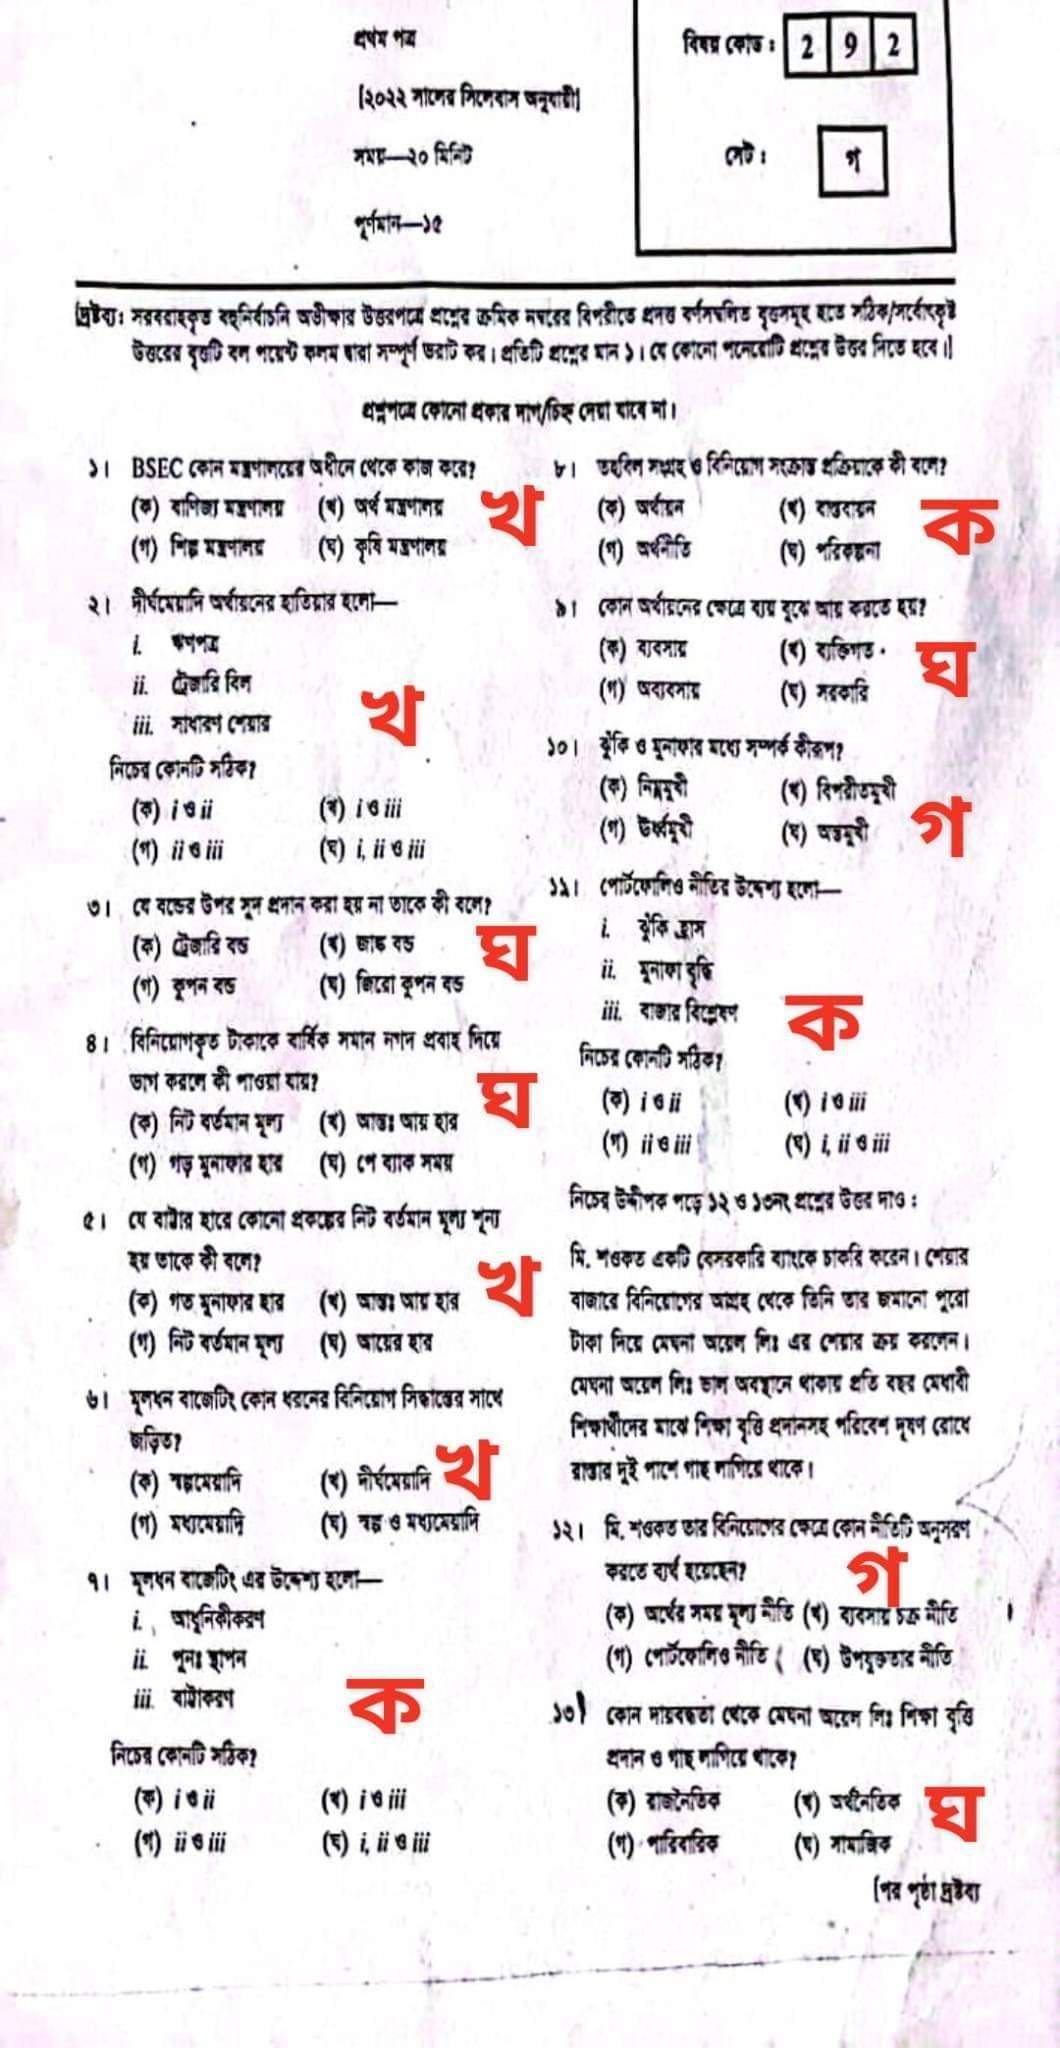 প্রথম পত্র
[২০২২ সালের সিলেবাস অনুযায়ী]
সময়—২০ মিনিট
পূর্ণমান—১৫
বিষয় কোড : 2 9 2
সেট : গ
[দ্রষ্টব্য: সরবরাহকৃত বহুনির্বাচনি অভীক্ষার উত্তরপত্রে প্রশ্নের ক্রমিক নম্বরের বিপরীতে প্রদত্ত বর্ণসম্বলিত বৃত্তসমূহ হতে সঠিক/সর্বোৎকৃষ্ট
উত্তরের বৃত্তটি বল পয়েন্ট কলম দ্বারা সম্পূর্ণ ভরাট কর। প্রতিটি প্রশ্নের মান ১। যে কোনো পনেরোটি প্রশ্নের উত্তর দিতে হবে।]
প্রশ্নপত্রে কোনো প্রকার দাগ/চিহ্ন দেয়া যাবে না।
১। BSEC কোন মন্ত্রণালয়ের অধীনে থেকে কাজ করে?
(ক) বাণিজ্য মন্ত্রণালয় (খ) অর্থ মন্ত্রণালয়
(গ) শিল্প মন্ত্রণালয় (ঘ) কৃষি মন্ত্রণালয়
খ
২। দীর্ঘমেয়াদি অর্থায়নের হাতিয়ার হলো—
i. ঋণপত্র
ii. ট্রেজারি বিল
iii. সাধারণ শেয়ার
খ
নিচের কোনটি সঠিক?
(ক) i ও ii (খ) i ও iii
(গ) ii ও iii (ঘ) i, ii ও iii
৩। যে বন্ডের উপর সুদ প্রদান করা হয় না তাকে কী বলে?
(ক) ট্রেজারি বন্ড (খ) জাঙ্ক বন্ড
(গ) কুপন বন্ড (ঘ) জিরো কুপন বন্ড
ঘ
৪। বিনিয়োগকৃত টাকাকে বার্ষিক সমান নগদ প্রবাহ দিয়ে
ভাগ করলে কী পাওয়া যায়?
(ক) নিট বর্তমান মূল্য (খ) আন্তঃ আয় হার
(গ) গড় মুনাফার হার (ঘ) পে ব্যাক সময়
ঘ
৫। যে বাট্টার হারে কোনো প্রকল্পের নিট বর্তমান মূল্য শূন্য
হয় তাকে কী বলে?
(ক) গড় মুনাফার হার (খ) আন্তঃ আয় হার
(গ) নিট বর্তমান মূল্য (ঘ) আয়ের হার
খ
৬। মূলধন বাজেটিং কোন ধরনের বিনিয়োগ সিদ্ধান্তের সাথে
জড়িত?
(ক) স্বল্পমেয়াদি (খ) দীর্ঘমেয়াদি
(গ) মধ্যমেয়াদি (ঘ) স্বল্প ও মধ্যমেয়াদি
খ
৭। মূলধন বাজেটিং এর উদ্দেশ্য হলো—
i. আধুনিকীকরণ
ii. পুনঃ স্থাপন
iii. বাট্টাকরণ
ক
নিচের কোনটি সঠিক?
(ক) i ও ii (খ) i ও iii
(গ) ii ও iii (ঘ) i, ii ও iii
৮। তহবিল সংগ্রহ ও বিনিয়োগ সংক্রান্ত প্রক্রিয়াকে কী বলে?
(ক) অর্থায়ন (খ) বাস্তবায়ন
(গ) অর্থনীতি (ঘ) পরিকল্পনা
ক
৯। কোন অর্থায়নের ক্ষেত্রে ব্যয় বুঝে আয় করতে হয়?
(ক) ব্যবসায় (খ) ব্যক্তিগত
(গ) অব্যবসায় (ঘ) সরকারি
ঘ
১০। ঝুঁকি ও মুনাফার মধ্যে সম্পর্ক কীরূপ?
(ক) নিম্নমুখী (খ) বিপরীতমুখী
(গ) উর্ধ্বমুখী (ঘ) অন্তমুখী
গ
১১। পোর্টফোলিও নীতির উদ্দেশ্য হলো—
i. ঝুঁকি হ্রাস
ii. মুনাফা বৃদ্ধি
iii. বাজার বিশ্লেষণ
ক
নিচের কোনটি সঠিক?
(ক) i ও ii (খ) i ও iii
(গ) ii ও iii (ঘ) i, ii ও iii
নিচের উদ্দীপক পড়ে ১২ ও ১৩নং প্রশ্নের উত্তর দাও :
মি. শওকত একটি বেসরকারি ব্যাংকে চাকরি করেন। শেয়ার
বাজারে বিনিয়োগের আগ্রহ থেকে তিনি তার জমানো পুরো
টাকা দিয়ে মেঘনা অয়েল লিঃ এর শেয়ার ক্রয় করলেন।
মেঘনা অয়েল লিঃ ভাল অবস্থানে থাকায় প্রতি বছর মেধাবী
শিক্ষার্থীদের মাঝে শিক্ষা বৃত্তি প্রদানসহ পরিবেশ দূষণ রোধে
রাস্তার দুই পাশে গাছ লাগিয়ে থাকে।
১২। মি. শওকত তার বিনিয়োগের ক্ষেত্রে কোন নীতিটি অনুসরণ
করতে ব্যর্থ হয়েছেন?
গ
(ক) অর্থের সময় মূল্য নীতি (খ) ব্যবসায় চক্র নীতি
(গ) পোর্টফোলিও নীতি (ঘ) উপযুক্ততার নীতি
১৩। কোন দায়বদ্ধতা থেকে মেঘনা অয়েল লিঃ শিক্ষা বৃত্তি
প্রদান ও গাছ লাগিয়ে থাকে?
(ক) রাজনৈতিক (খ) অর্থনৈতিক
(গ) পারিবারিক (ঘ) সামাজিক
ঘ
[পর পৃষ্ঠা দ্রষ্টব্য